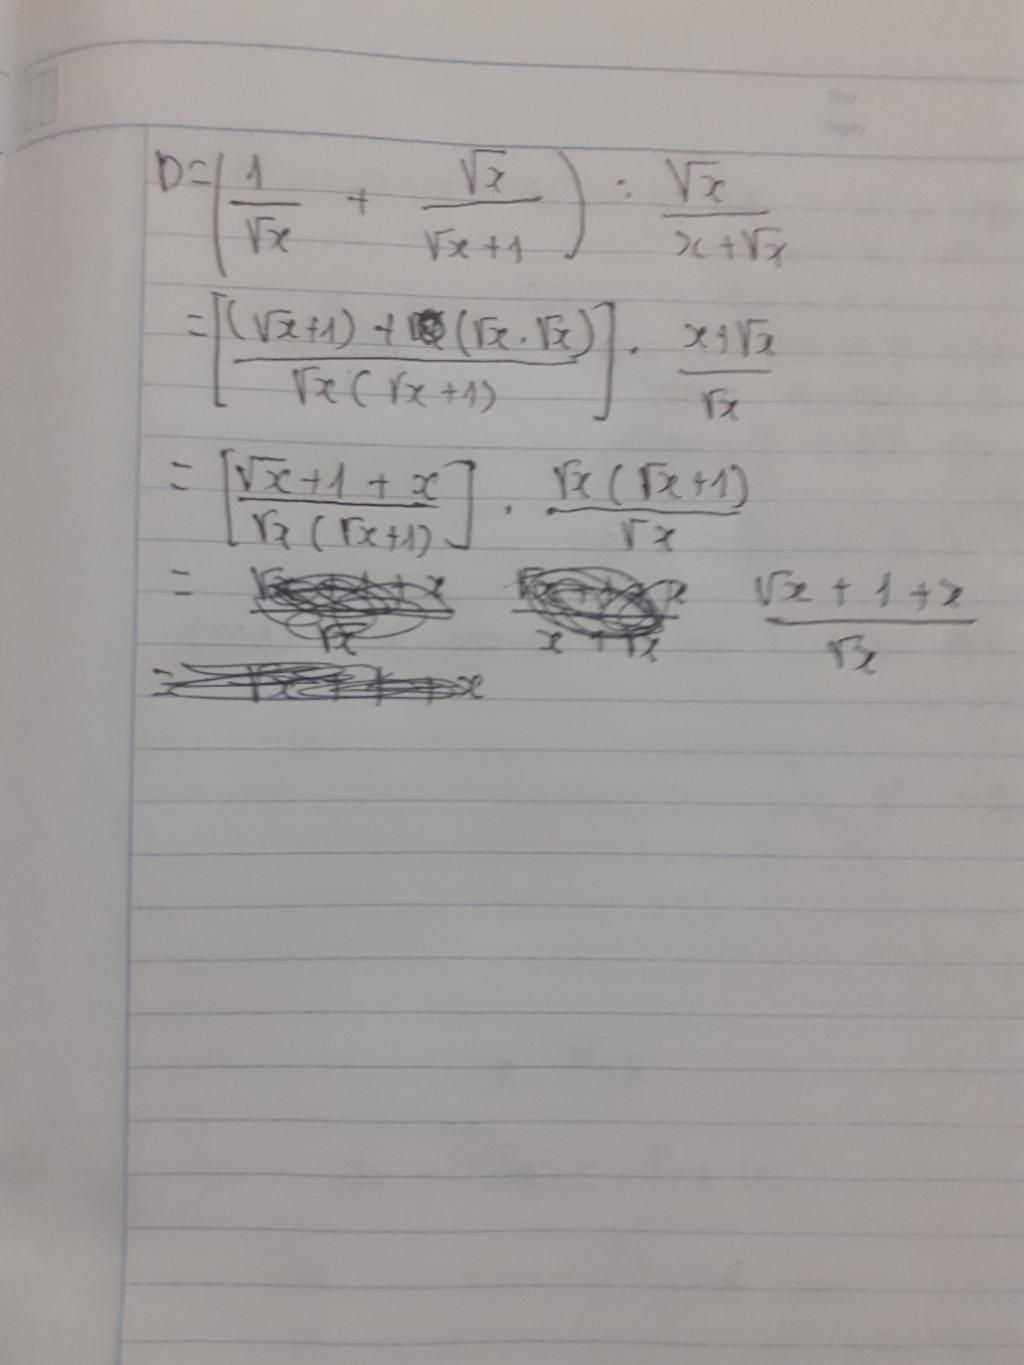 D = ( 1/√x + √x/√x+1 ) : √x/x+√x
= [ (√x+1) + (√x.√x) / √x(√x+1) ] . x+√x/√x
= [ √x+1+x / √x(√x+1) ] . √x(√x+1)/√x
= √x+1+x/√x